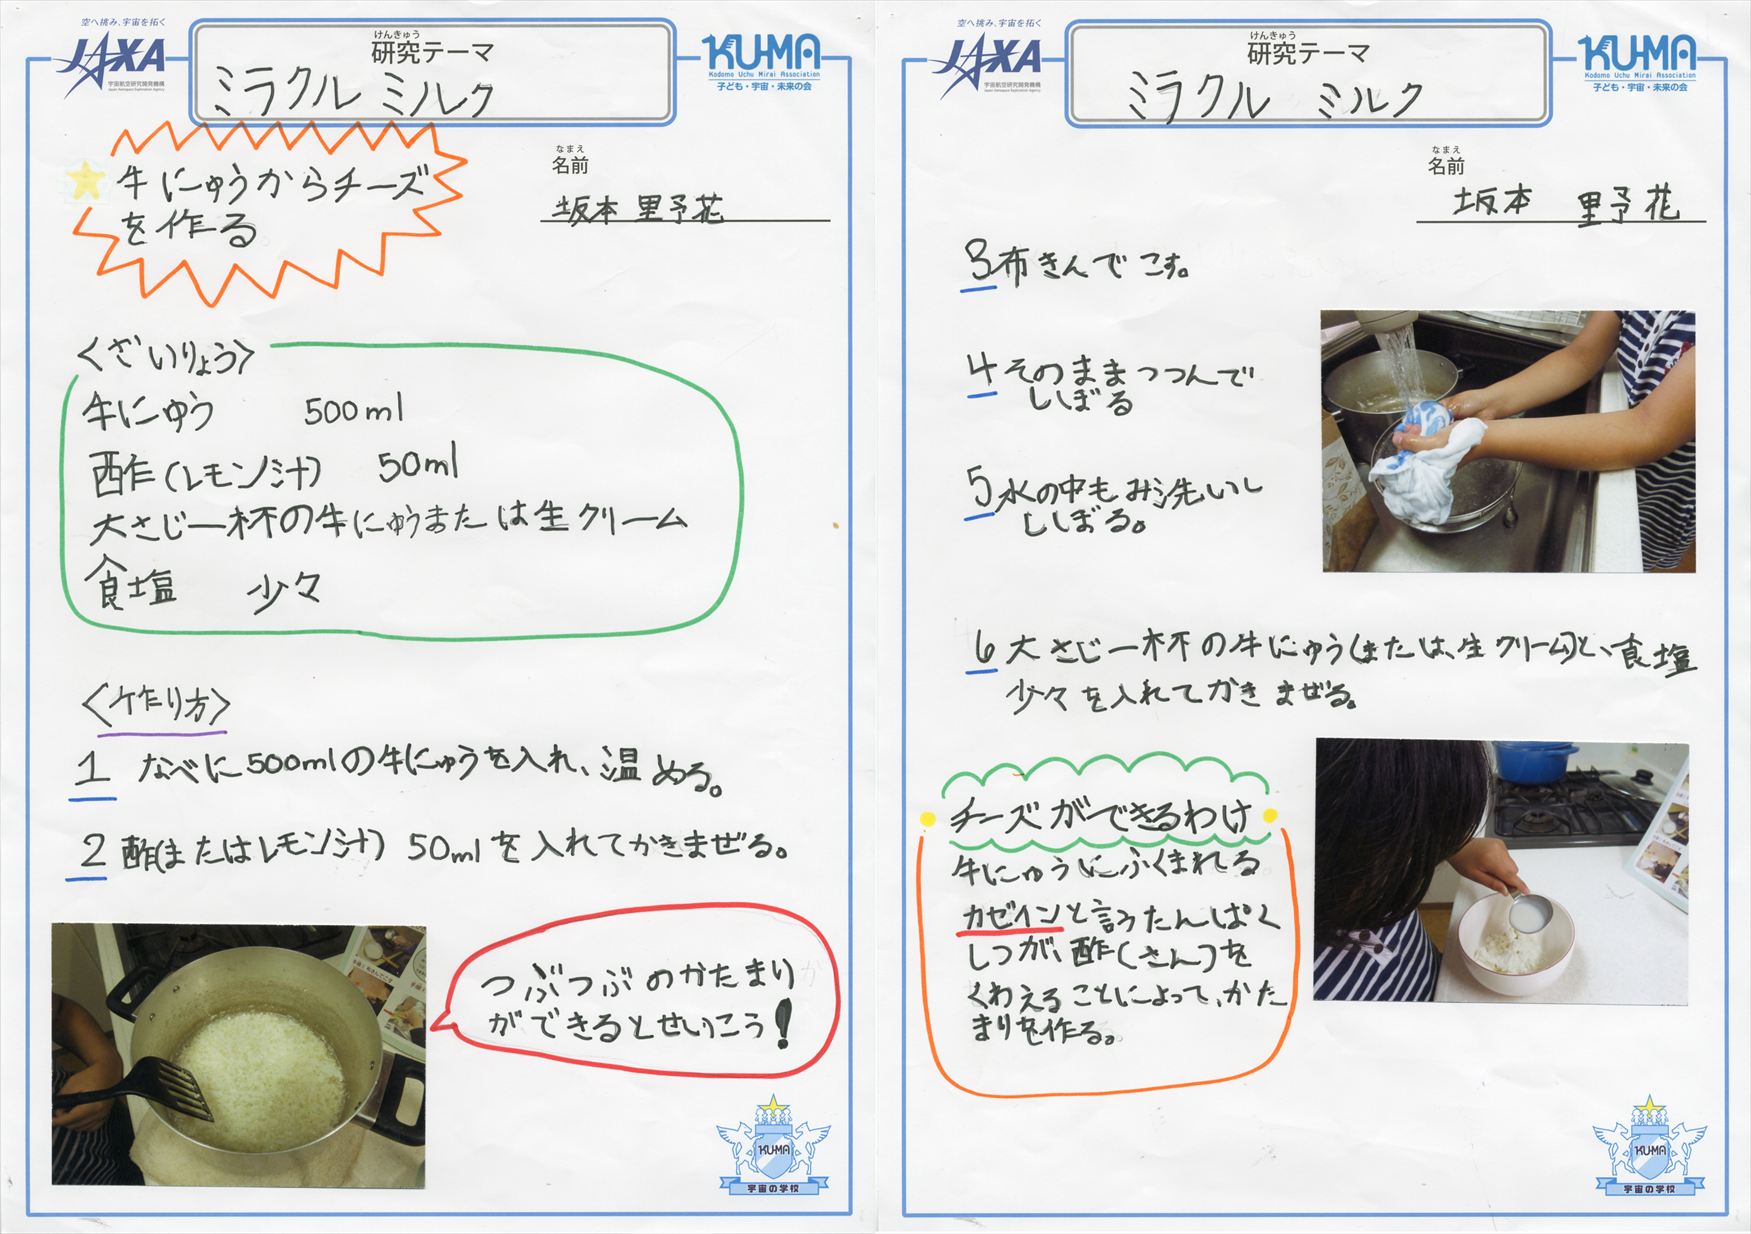 空へ挑み、宇宙を拓く
JAXA
宇宙航空研究開発機構
Japan Aerospace Exploration Agency
けんきゅう
研究テーマ
ミラクル ミルク
KU-MA
Kodomo Uchu Mirai Association
子ども・宇宙・未来の会
牛にゅうからチーズ
を作る
なまえ
名前
坂本 里予花
〈ざいりょう〉
牛にゅう 500ml
酢(レモン汁) 50ml
大さじ一杯の牛にゅうまたは生クリーム
食塩 少々
〈作り方〉
1 なべに500mlの牛にゅうを入れ、温める。
2 酢(またはレモン汁) 50mlを入れてかきまぜる。
つぶつぶのかたまり
ができるとせいこう!
KU-MA
宇宙の学校
空へ挑み、宇宙を拓く
JAXA
宇宙航空研究開発機構
Japan Aerospace Exploration Agency
けんきゅう
研究テーマ
ミラクル ミルク
KU-MA
Kodomo Uchu Mirai Association
子ども・宇宙・未来の会
なまえ
名前
坂本 里予花
3 布きんでこす。
4 そのままつつんで
ししぼる
5 水の中もみ洗いし
ししぼる。
6 大さじ一杯の牛にゅう(または、生クリーム)と、食塩
少々を入れてかきまぜる。
チーズができるわけ
牛にゅうにふくまれる
カゼインと言うたんぱく
しつが、酢(さん)を
くわえることによって、かた
まりを作る。
KU-MA
宇宙の学校